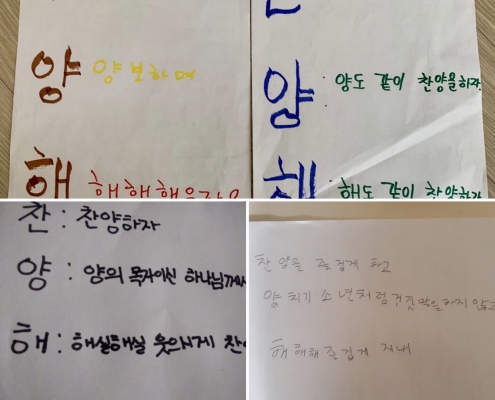 양 양보하며
해 해해해웃자
양 : 양도 같이 찬양을하자
해 : 해도 같이 찬양하자
찬 : 찬양하자
양 : 양의 목자이신 하나님께서
해 : 해실해실 웃으시게 찬
찬양을 즐겁게 하고
양치기 소년처럼 거짓말을 하지 않고
해해해 즐겁게 지내